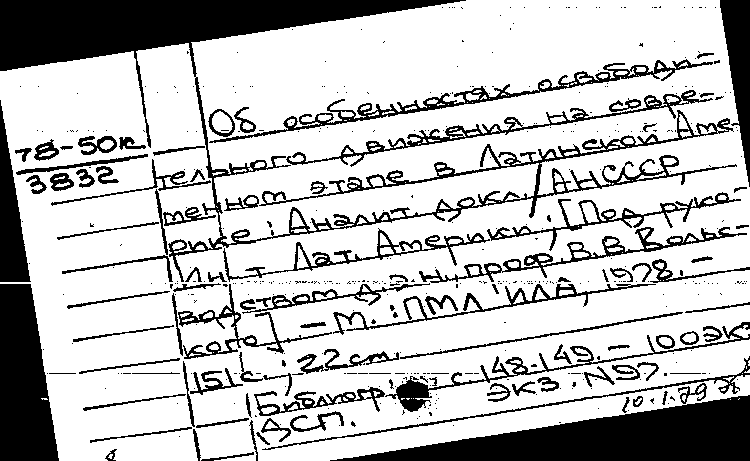 78-50к
3832
Об особенностях освободи-
тельного движения на совре-
менном этапе в Латинской Аме-
рике: Аналит. докл. / АНСССР,
Ин-т Лат. Америки; [Под руко-
водством д.э.н., проф. В.В. Вольс-
кого]. – М.: ПМЛ ИЛА, 1978. –
151с.; 22см.
Библиогр.: с. 148-149. – 100экз
экз. N97.
ДСП.
10.1.79